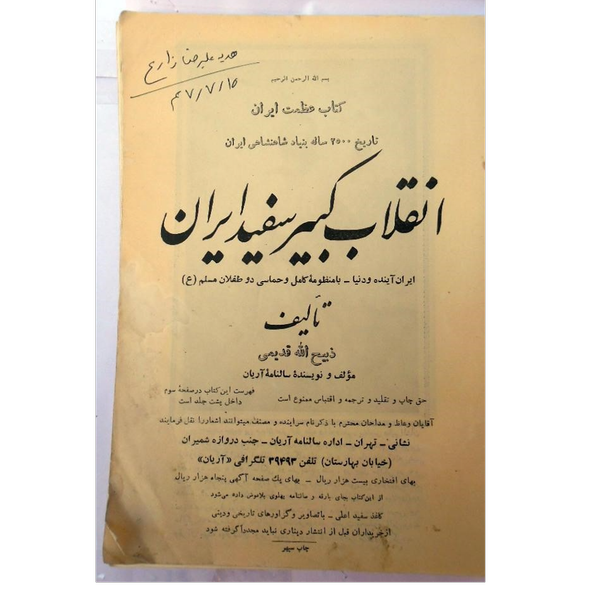 هدیه علیرضا زارع
۴۷/۷/۱۵
بسم الله الرحمن الرحیم
کتاب عظمت ایران
تاریخ ۲۵۰۰ ساله بنیاد شاهنشاهی ایران
انقلاب کبیر سفید ایران
ایران آینده و دنیا - بامنظومهٔ کامل و حماسی دو طفلان مسلم (ع)
تألیف
ذبیح الله قدیمی
مؤلف و نویسندهٔ سالنامهٔ آریان
حق چاپ و تقلید و ترجمه و اقتباس ممنوع است
فهرست این کتاب در صفحهٔ سوم
داخل پشت جلد است
آقایان وعاظ و مداحان محترم با ذکر نام سراینده و مصنف میتوانند اشعار را نقل فرمایند
نشانی - تهران - اداره سالنامهٔ آریان - جنب دروازه شمیران
(خیابان بهارستان) تلفن ۳۹۴۹۳ تلگرافی «آریان»
بهای افتخاری بیست هزار ریال - بهای یک صفحه آگهی پنجاه هزار ریال
از این کتاب بجای بارفه و سالنامه پهلوی بلاعوض داده می‌شود
کاغذ سفید اعلی - باتصاویر و گراورهای تاریخی ودینی
از خریداران قبل از انتشار دیناری نباید مجدداً گرفته شود
چاپ سپهر